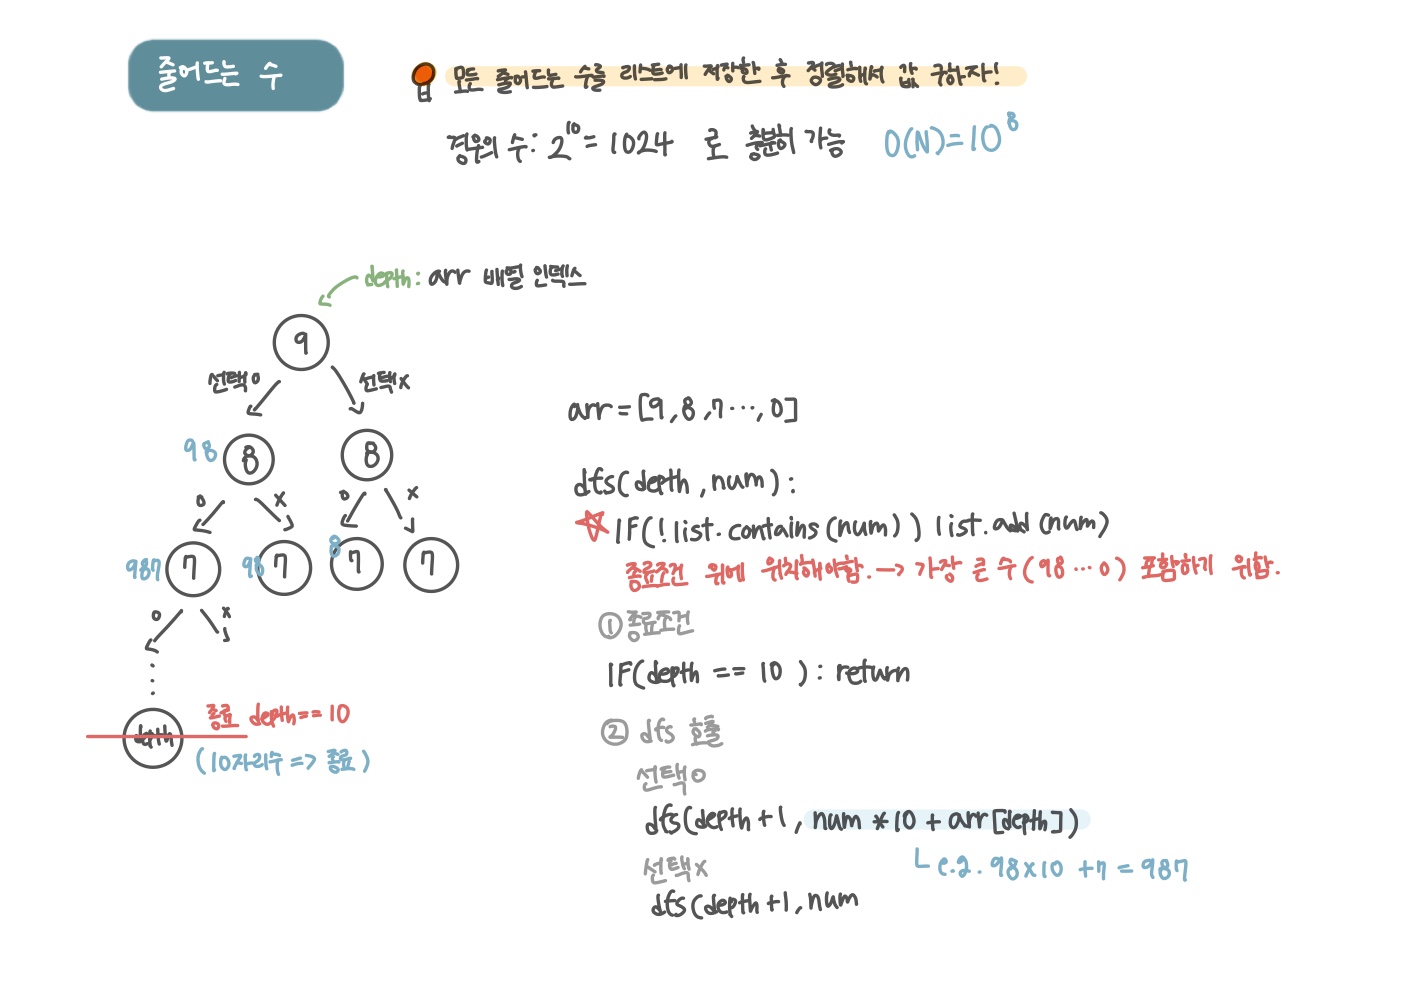 줄어드는 수
모든 줄어드는 수를 리스트에 저장한 후 정렬해서 값 구하자!
경우의 수: 2^10 = 1024 로 충분히 가능 O(N)=10^8
depth: arr 배열 인덱스
9
선택o 선택x
98 8 8
o x o x
987 7 98 7 8 7 7
o x
⋮
depth
종료 depth==10
(10자리수 => 종료)
arr=[9,8,7···,0]
dfs(depth,num):
☆IF(!list.contains(num)) list.add(num)
종료조건 위에 위치해야함.→ 가장 큰 수(98···0) 포함하기 위함.
① 종료조건
IF(depth == 10 ): return
② dfs 호출
선택o
dfs(depth+1, num *10 + arr[depth])
e.g. 98x10 +7 = 987
선택x
dfs(depth+1, num